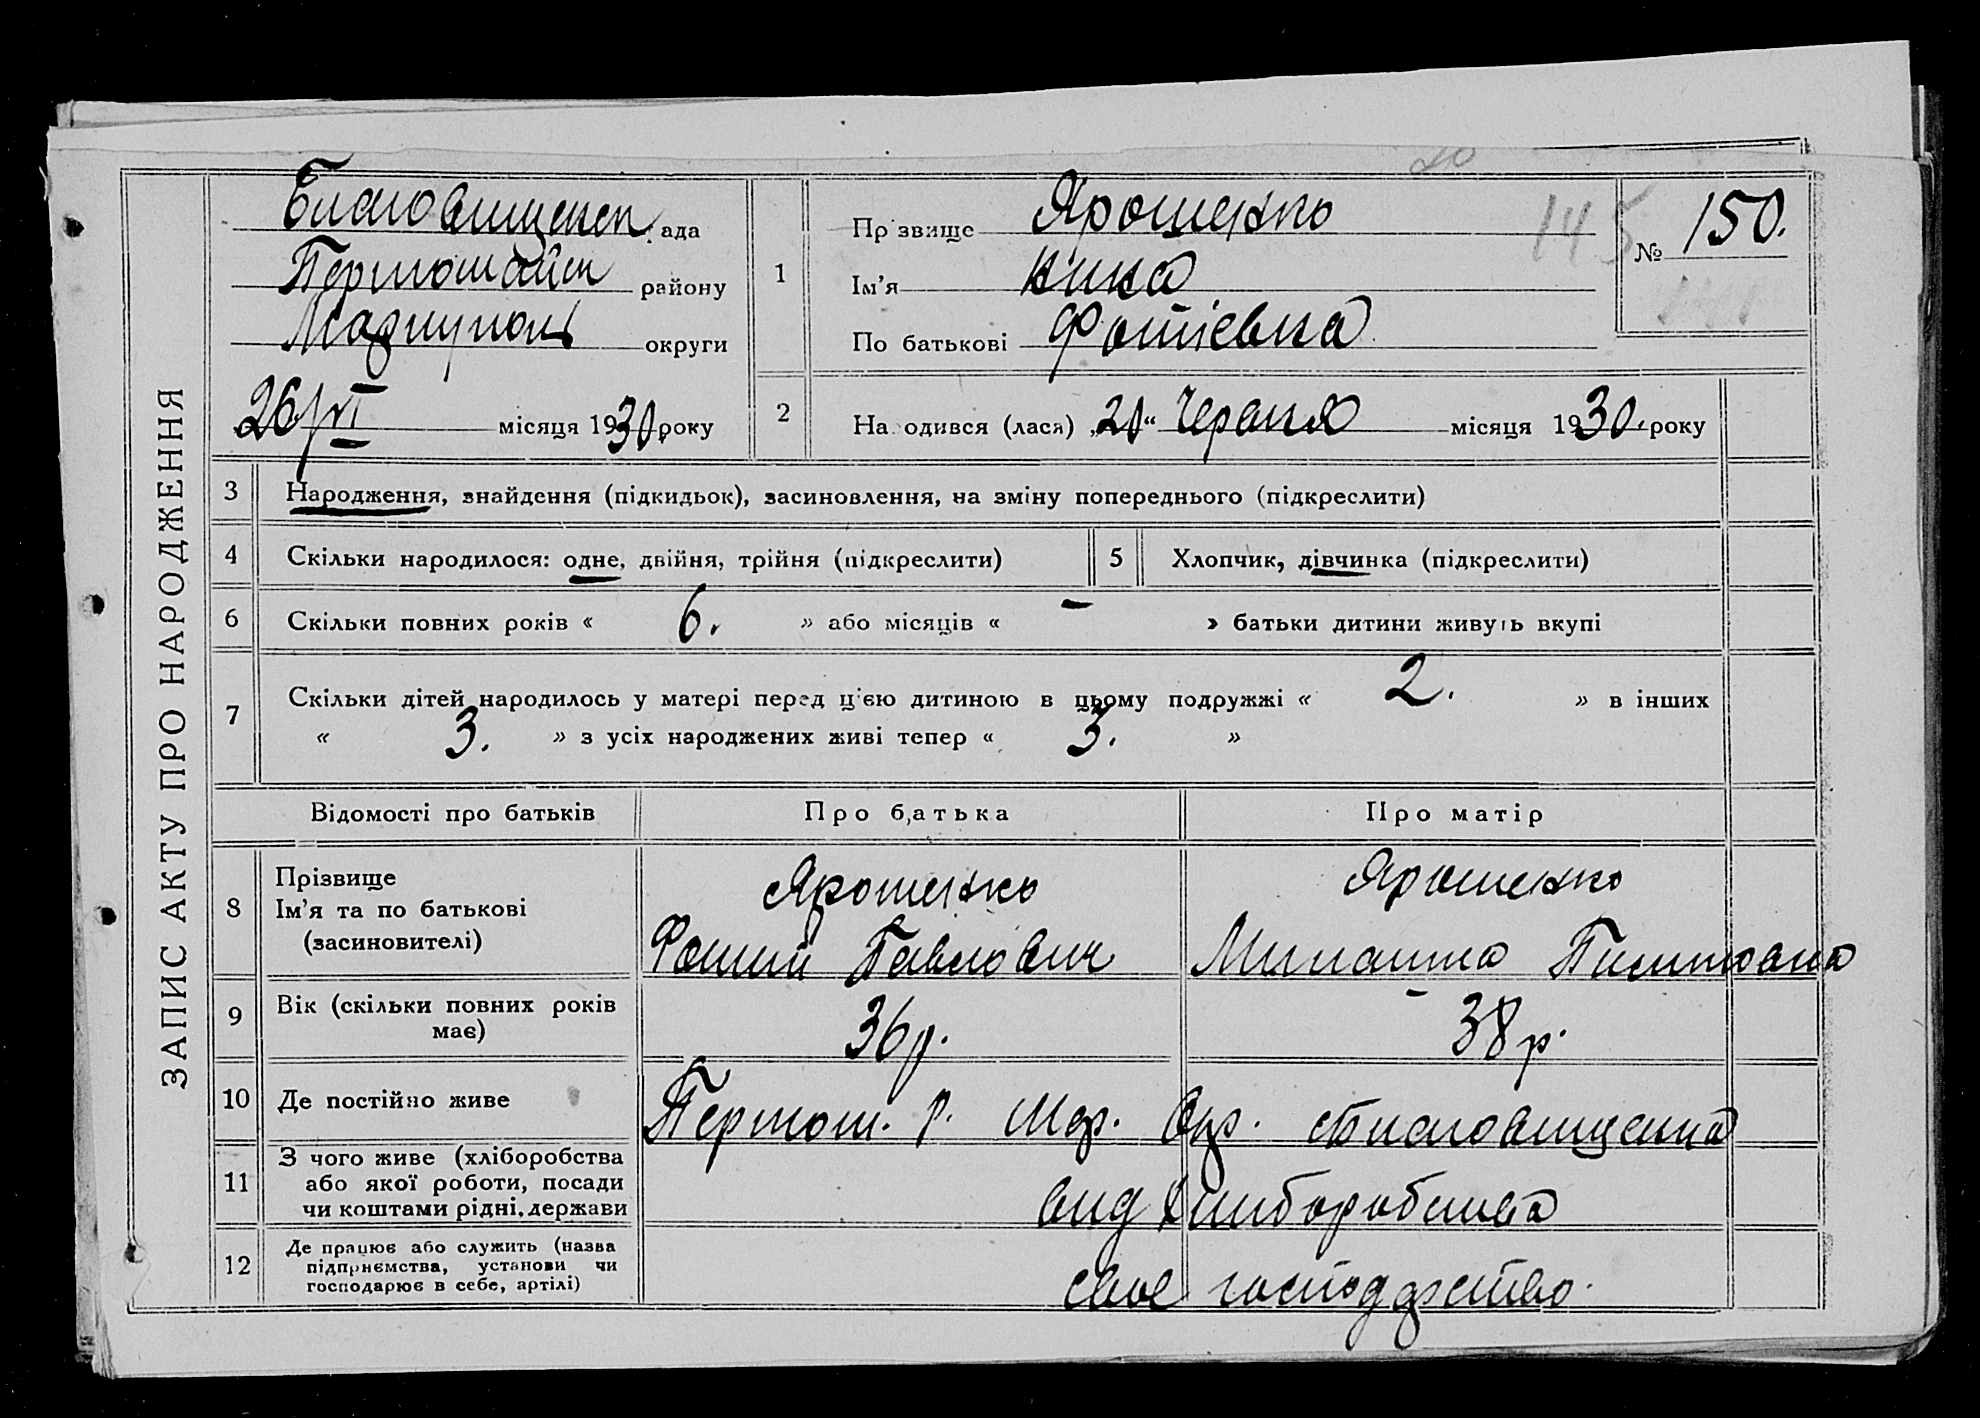 ЗАПИС АКТУ ПРО НАРОДЖЕННЯ
Благовищенск рада
Першотравн району
Маріупол округи
26/VI місяця 1930 року
1
Прізвище Ярошенко
Ім'я Нина
По батькові Фотіевна
145
№ 150.
141
2
Народився (лася) „20“ Червня місяця 1930. року
3 Народження, знайдення (підкидьок), засиновлення, на зміну попереднього (підкреслити)
4 Скільки народилося: одне, двійня, трійня (підкреслити)
5 Хлопчик, дівчинка (підкреслити)
6 Скільки повних років « 6. » або місяців « – » батьки дитини живуть вкупі
7 Скільки дітей народилось у матері перед ц'єю дитиною в цьому подружжі « 2. » в інших
« 3. » з усіх народжених живі тепер « 3. »
Відомості про батьків Про батька Про матір
8 Прізвище Ярошенко Ярошенко
Ім'я та по батькові
(засиновителі) Фотий Павлович
9 Вік (скільки повних років
має) 36 р. 38 р.
10 Де постійно живе р. Мар. Окр. Благовищенка
11 З чого живе (хліборобства
або якої роботи, посади
чи коштами рідні, держави
вид хлиборобства
12 Де працює або служить (назва
підприємства, установи чи
господарює в себе, артілі)
свое господарство.